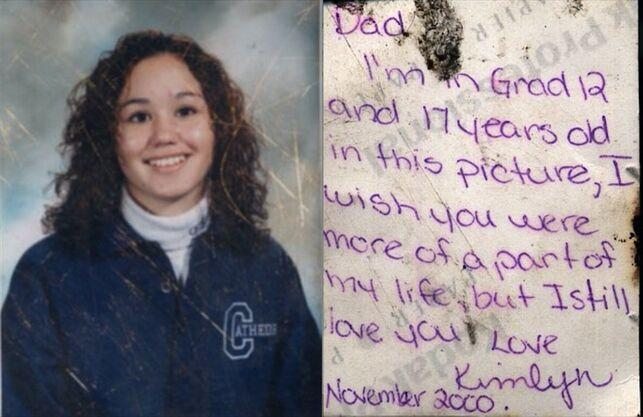 CATHEDR
Dad
I'm in Grad 12
and 17 years old
in this picture, I
wish you were
more of a part of
my life, but I still
love you Love
Kimlyn
November 2000.
Kodak